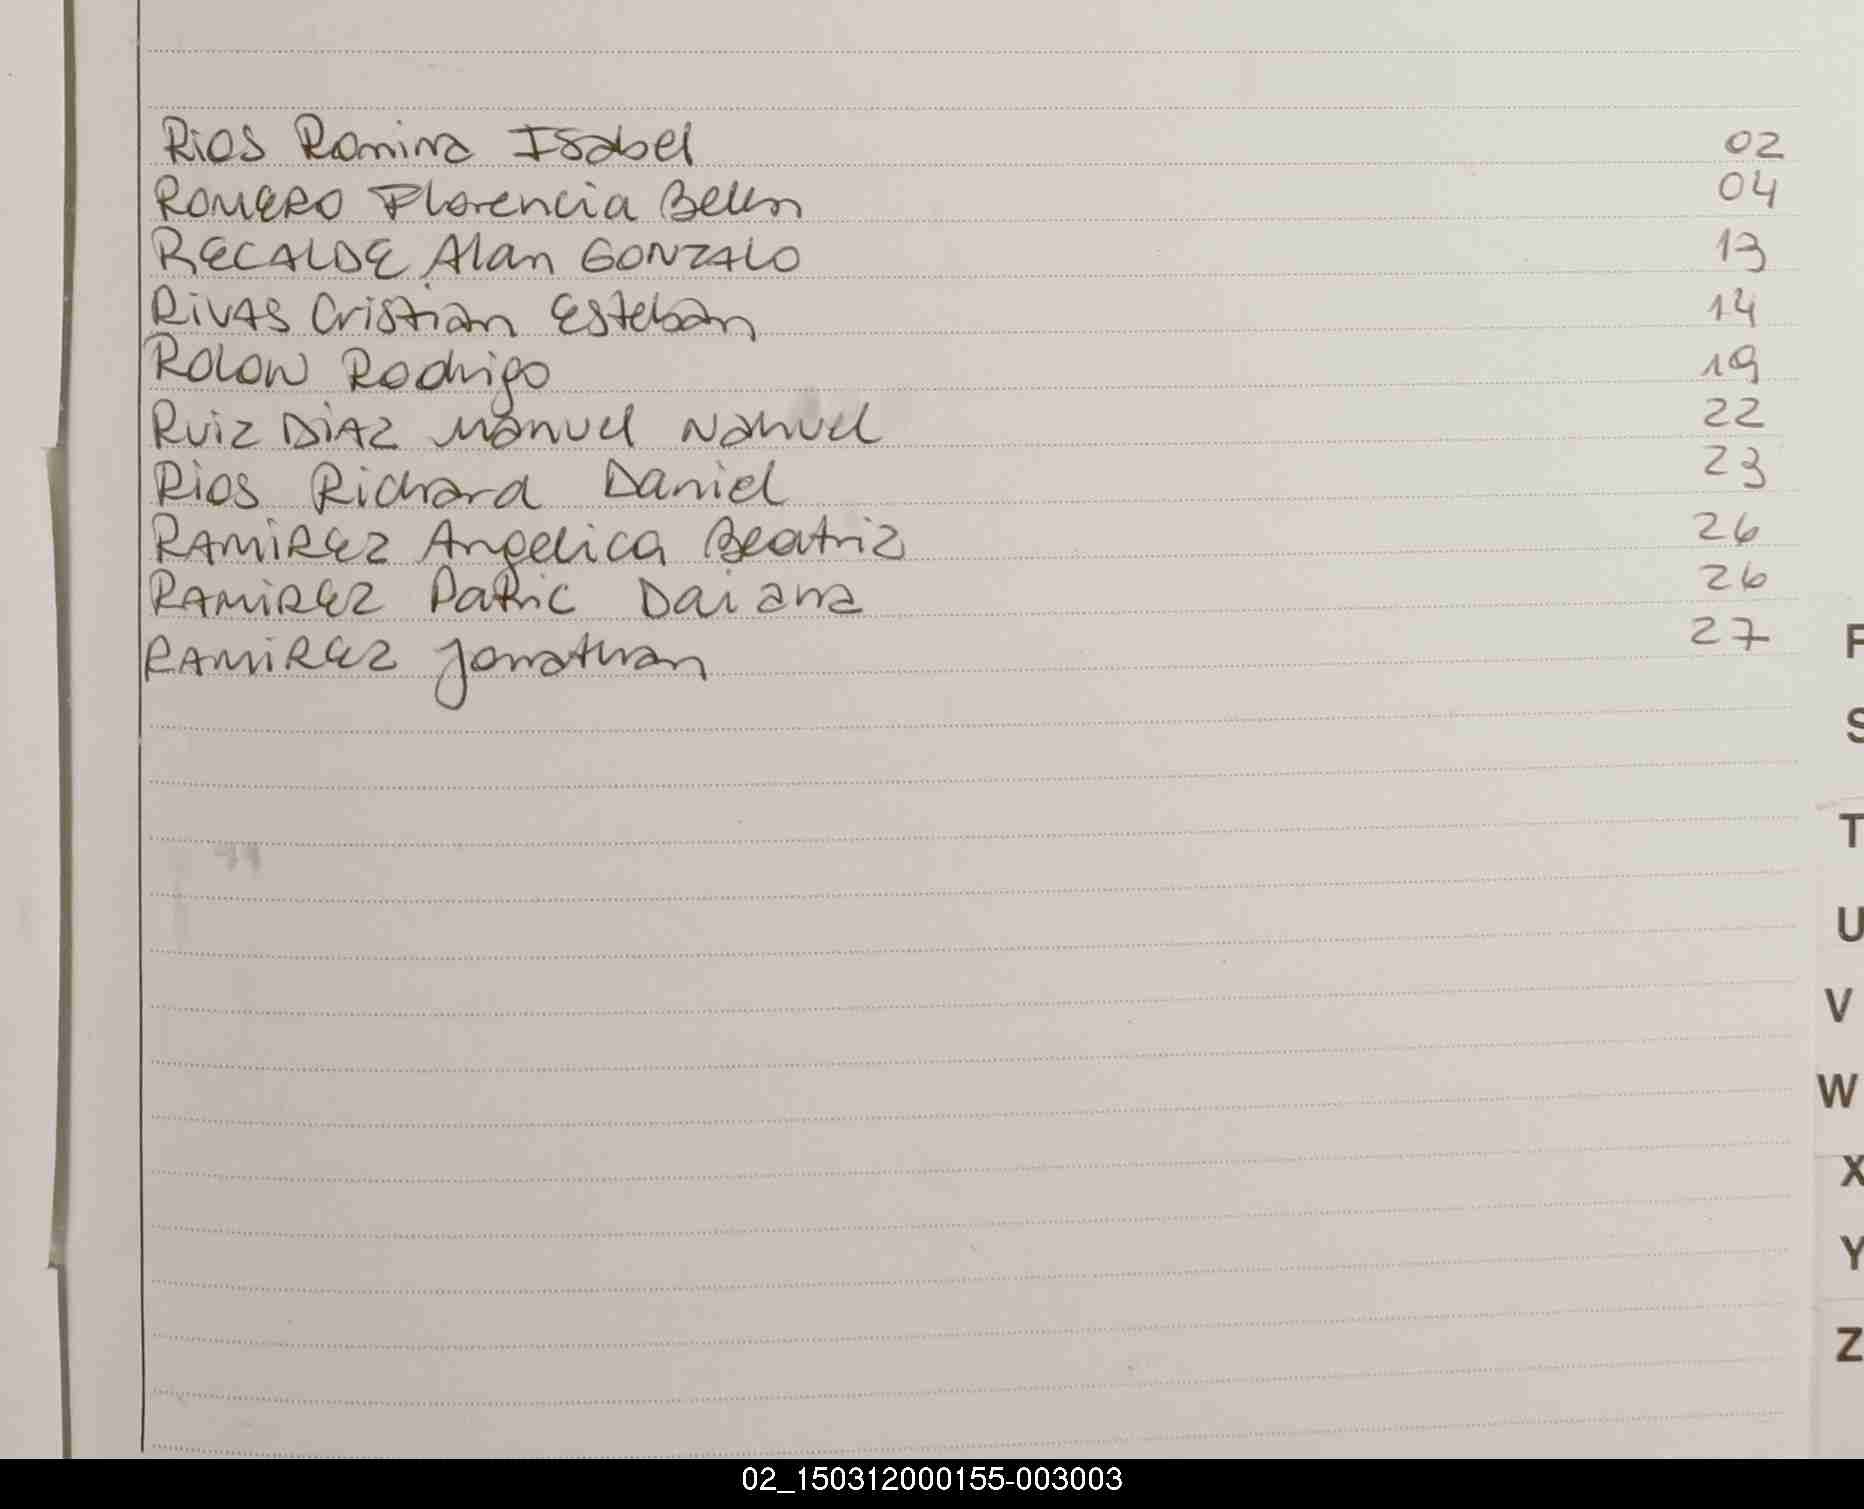 Rios Romina Isabel 02
ROMERO Florencia Belen 04
RECALDE Alan GONZALO 13
RIVAS Cristian Esteban 14
ROLON Rodrigo 19
Ruiz DIAZ Manuel Nahuel 22
Rios Richard Daniel 23
RAMIREZ Angelica Beatriz 26
RAMIREZ Patric Daiana 26
RAMIREZ Jonathan 27
S
T
U
V
W
X
Y
Z
02_150312000155-003003